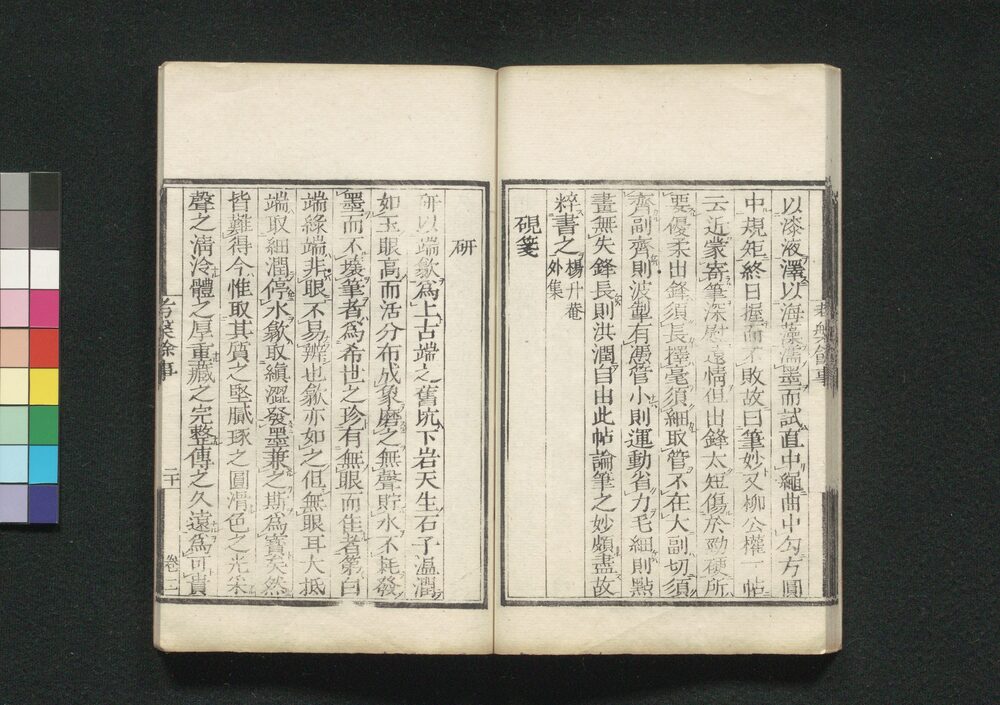 以漆液澤以海藻濡墨而試直中繩曲中勾方圓
中規矩終日握而不敗故曰筆妙又柳公權一帖
云近蒙寄筆深慰遠情但出鋒太短傷於勁硬所
要優柔出鋒須長擇毫須細取管不在大副切須
齊副齊則波掣有憑管小則運動省力毛細則點
畫無失鋒長則洪潤自由此帖論筆之妙頗盡故
粹書之楊升菴外集
硯箋
研
研以端歙爲上古端之舊坑下岩天生石子溫潤
如玉眼高而活分布成象磨之無聲貯水不耗發
墨而不壞筆者爲希世之珍有無眼而佳者第白
端綠端非眼不易辨也歙亦如之但無眼耳大抵
端取細潤停水歙取縝澀發墨兼之斯爲寳矣然
皆難得今惟取其質之堅膩琢之圓滑色之光采
聲之清泠體之厚重藏之完整傳之久遠爲可貴
考槃餘事
二十
卷二